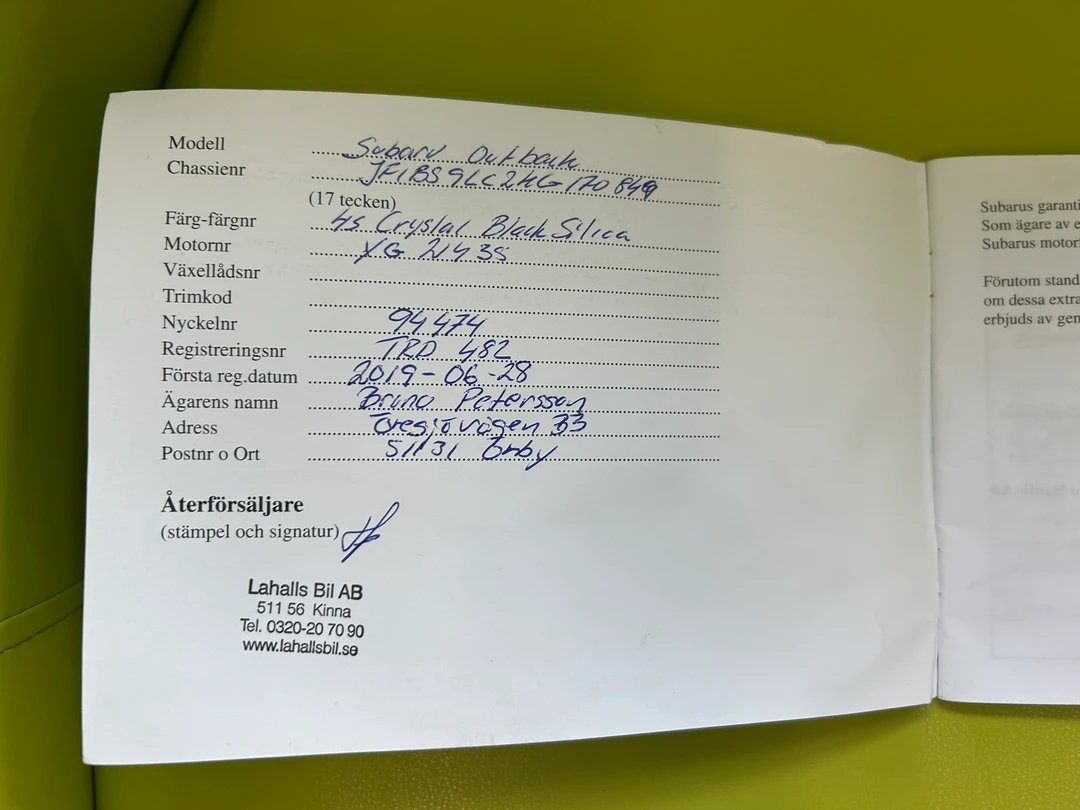 Modell Subaru Outback
Chassienr JF1BS9LC2KG170849
(17 tecken)
Färg-färgnr Crystal Black Silica
Motornr YG 21435
Växellådsnr
Trimkod
Nyckelnr 94474
Registreringsnr TRD 482
Första reg.datum 2019-06-28
Ägarens namn Bruno Petersson
Adress 33
Postnr o Ort 51131 Örby
Återförsäljare
(stämpel och signatur)
Lahalls Bil AB
511 56 Kinna
Tel. 0320-20 70 90
www.lahallsbil.se
Subarus garanti
Som ägare av
Subarus
Förutom
om dessa
erbjuds av